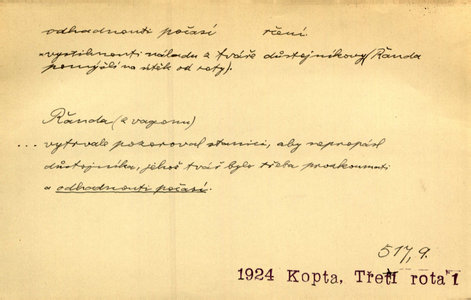 odhadnouti počasí rčení.
vystihnouti náladu z tváře důstojníkovy (Řanda
pomýšlí na útěk od roty).
Řanda (z vagonu)
... vytrvale pozoroval stanici, aby nepropásl
důstojníka, jehož tvář bylo třeba prozkoumati
a odhadnouti počasí.
517,9.
1924 Kopta, Třetí rota 1